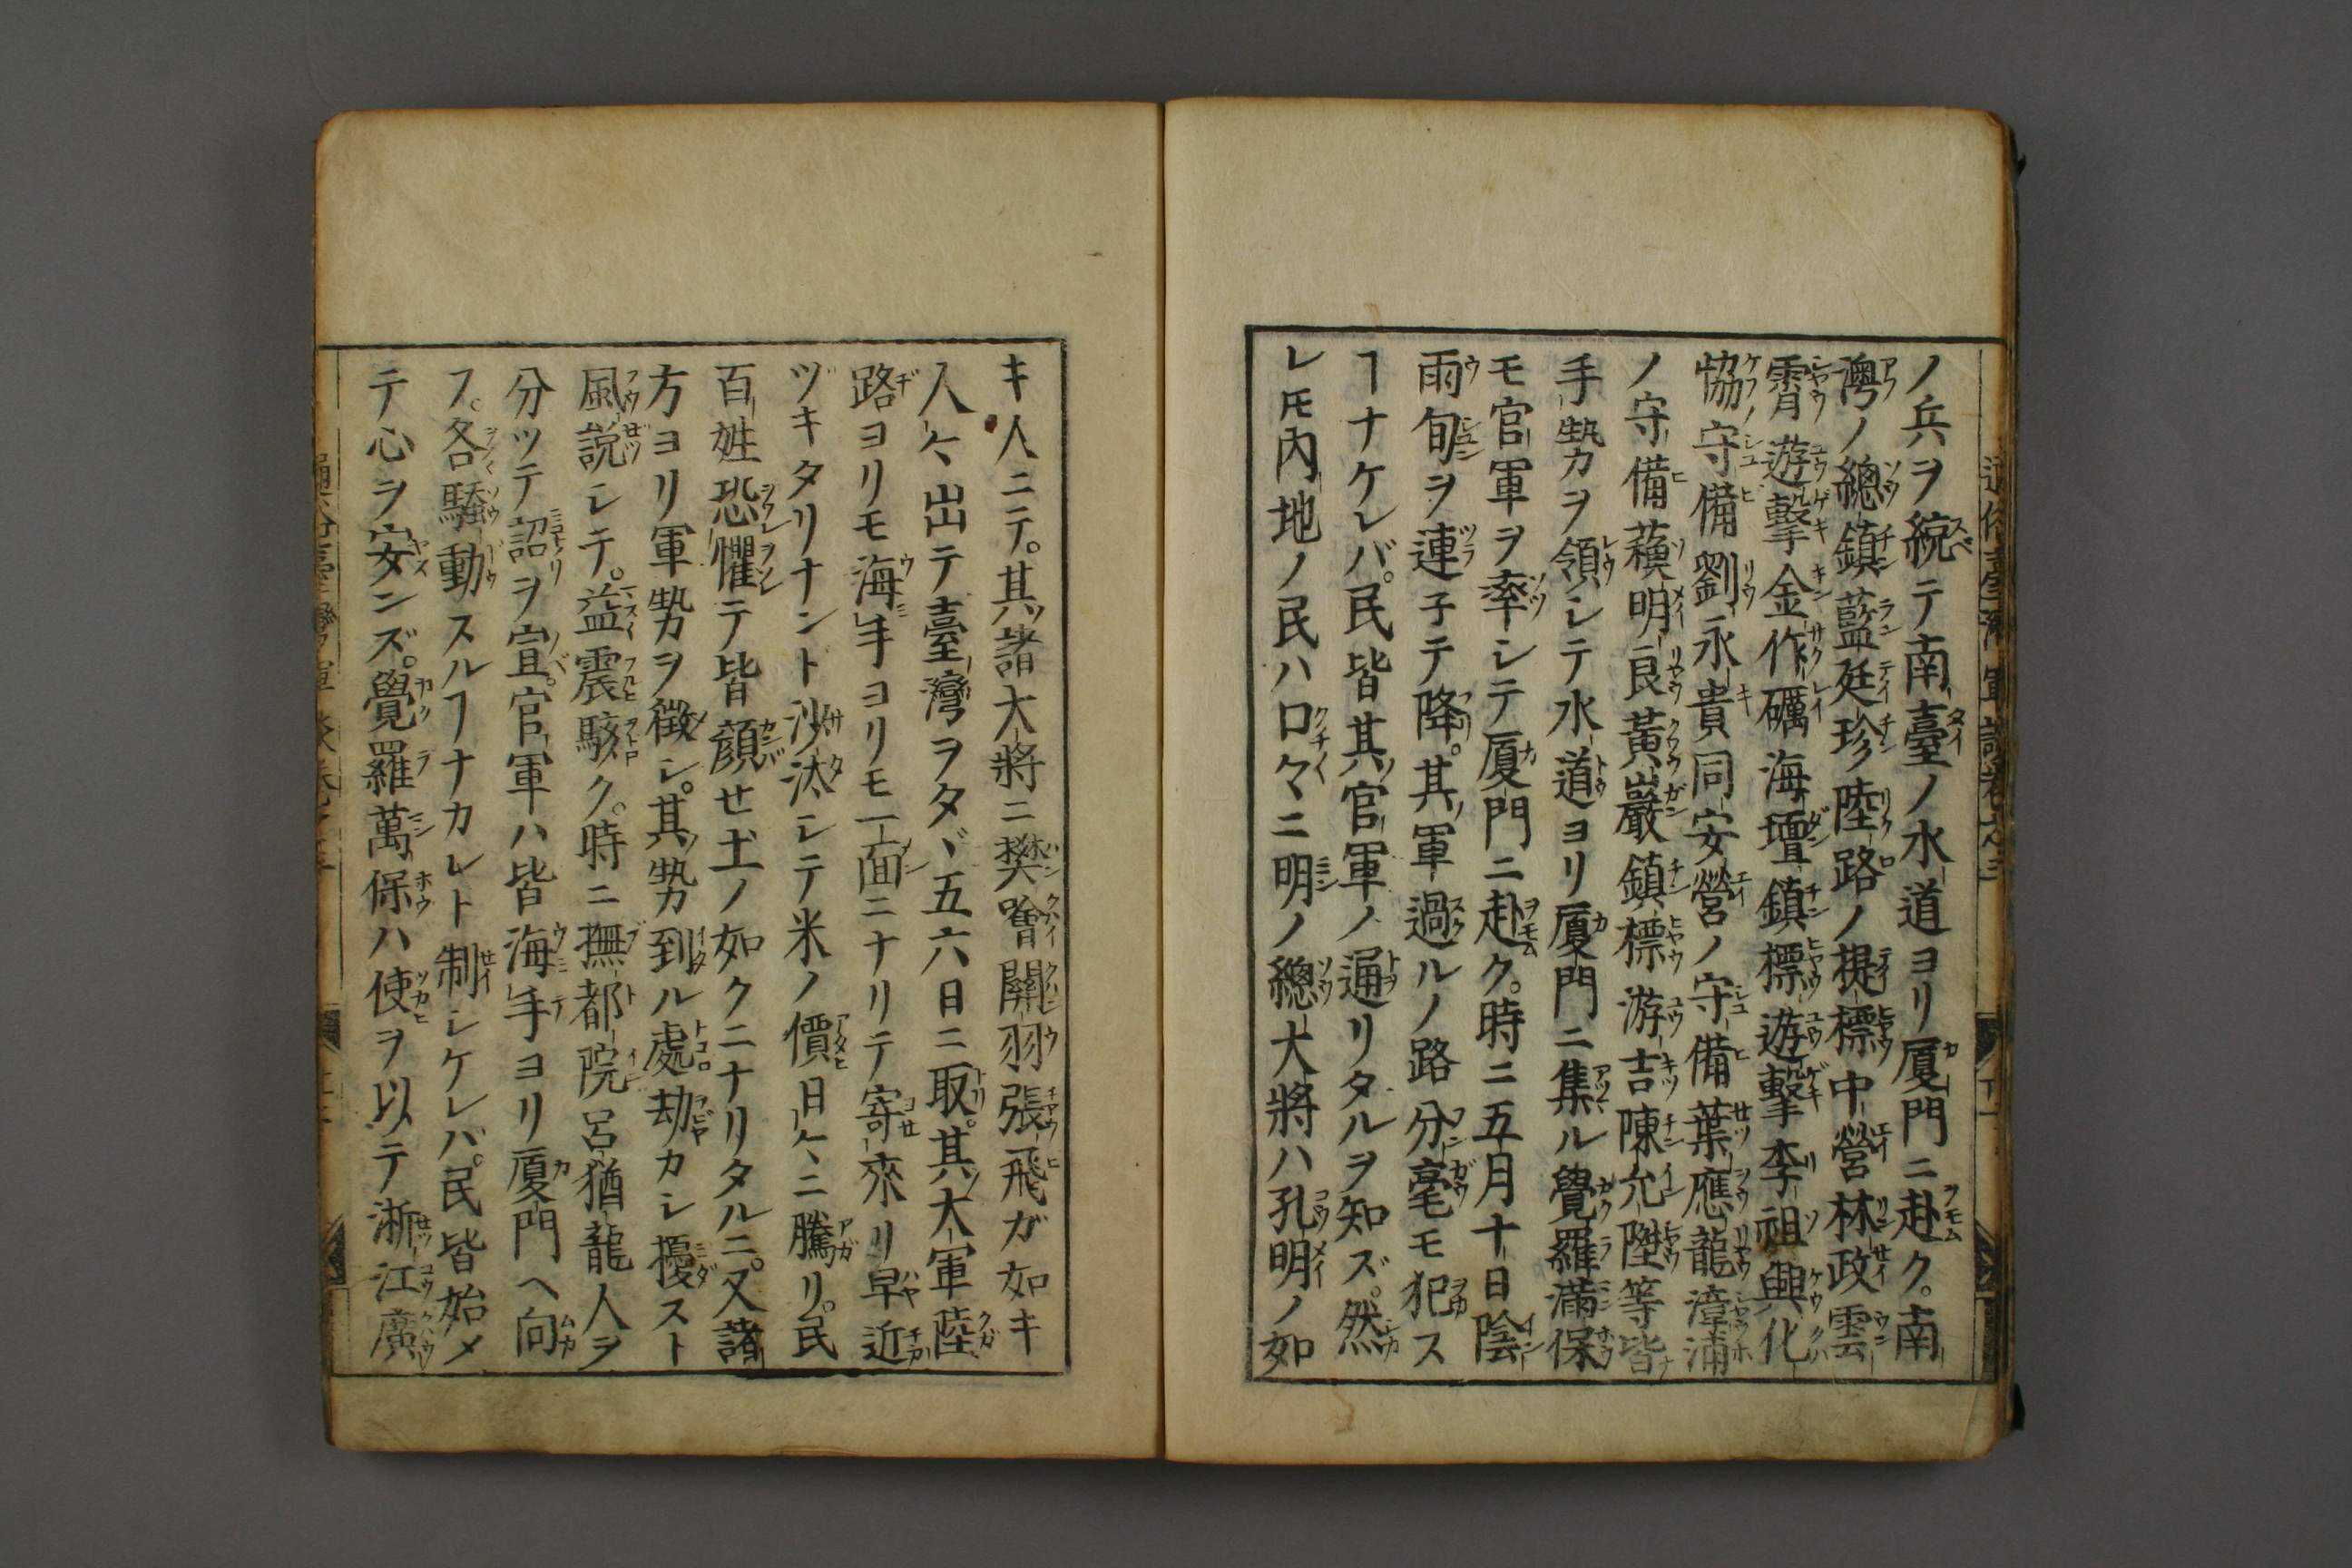 ノ兵ヲ統テ南臺ノ水道ヨリ厦門ニ赴ク。南
澳ノ總鎮藍廷珍陸路ノ提標中營林政雲
霄遊擊金作礪海壇鎮標遊擊李祖興化
恊守備劉永貴同安營ノ守備葉應龍漳浦
ノ守備蘓明良黃巖鎮標游吉陳允陞等皆
手勢ヲ領シテ水道ヨリ厦門ニ集ル覺羅滿保
モ官軍ヲ率シテ厦門ニ赴ク。時ニ五月十日陰
雨旬ヲ連子テ降。其軍過ルノ路分毫モ犯ス
ヿナケレバ。民皆其官軍ノ通リタルヲ知ズ。然
レ𪜈内地ノ民ハ口々ニ明ノ總大將ハ孔明ノ如
キ人ニテ。其諸大將ニ樊噲關羽張飛ガ如キ
人々出テ臺灣ヲタヾ五六日ニ取。其大軍陸
路ヨリモ海手ヨリモ一面ニナリテ寄來リ早近
ヅキタリナント沙汰シテ米ノ價日々ニ騰リ。民
百姓恐懼テ皆顔セ土ノ如クニナリタルニ。又諸
方ヨリ軍勢ヲ徴シ。其勢到ル處劫カシ擾スト
風説シテ。益震駭ク。時ニ撫都院呂猶龍人ヲ
分ツテ詔ヲ宣。官軍ハ皆海手ヨリ厦門ヘ向
フ。各騷動スルヿナカレト制シケレバ。民皆始メ
テ心ヲ安ンズ。覺羅萬保ハ使ヲ以テ淅江廣